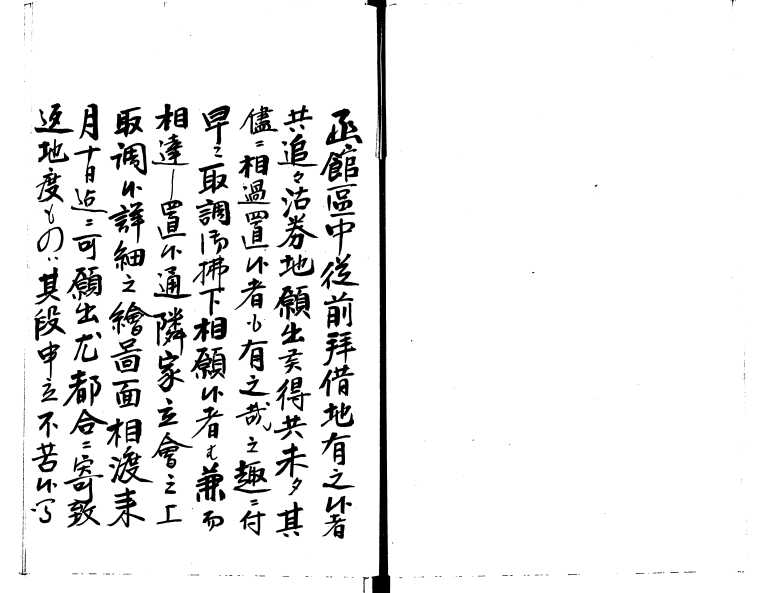 函館區中従前拜借地有之候者
共追々沽券地願出候得共未タ其
儘ニ相過置候者も有之哉之趣ニ付
早々取調御拂下相願候者も兼而
相達し置候通隣家立會之上
取調候詳細之繪圖面相渡来
月十日迠ニ可願出尤都合ニ寄致
返地度ものハ其段申立不苦候写